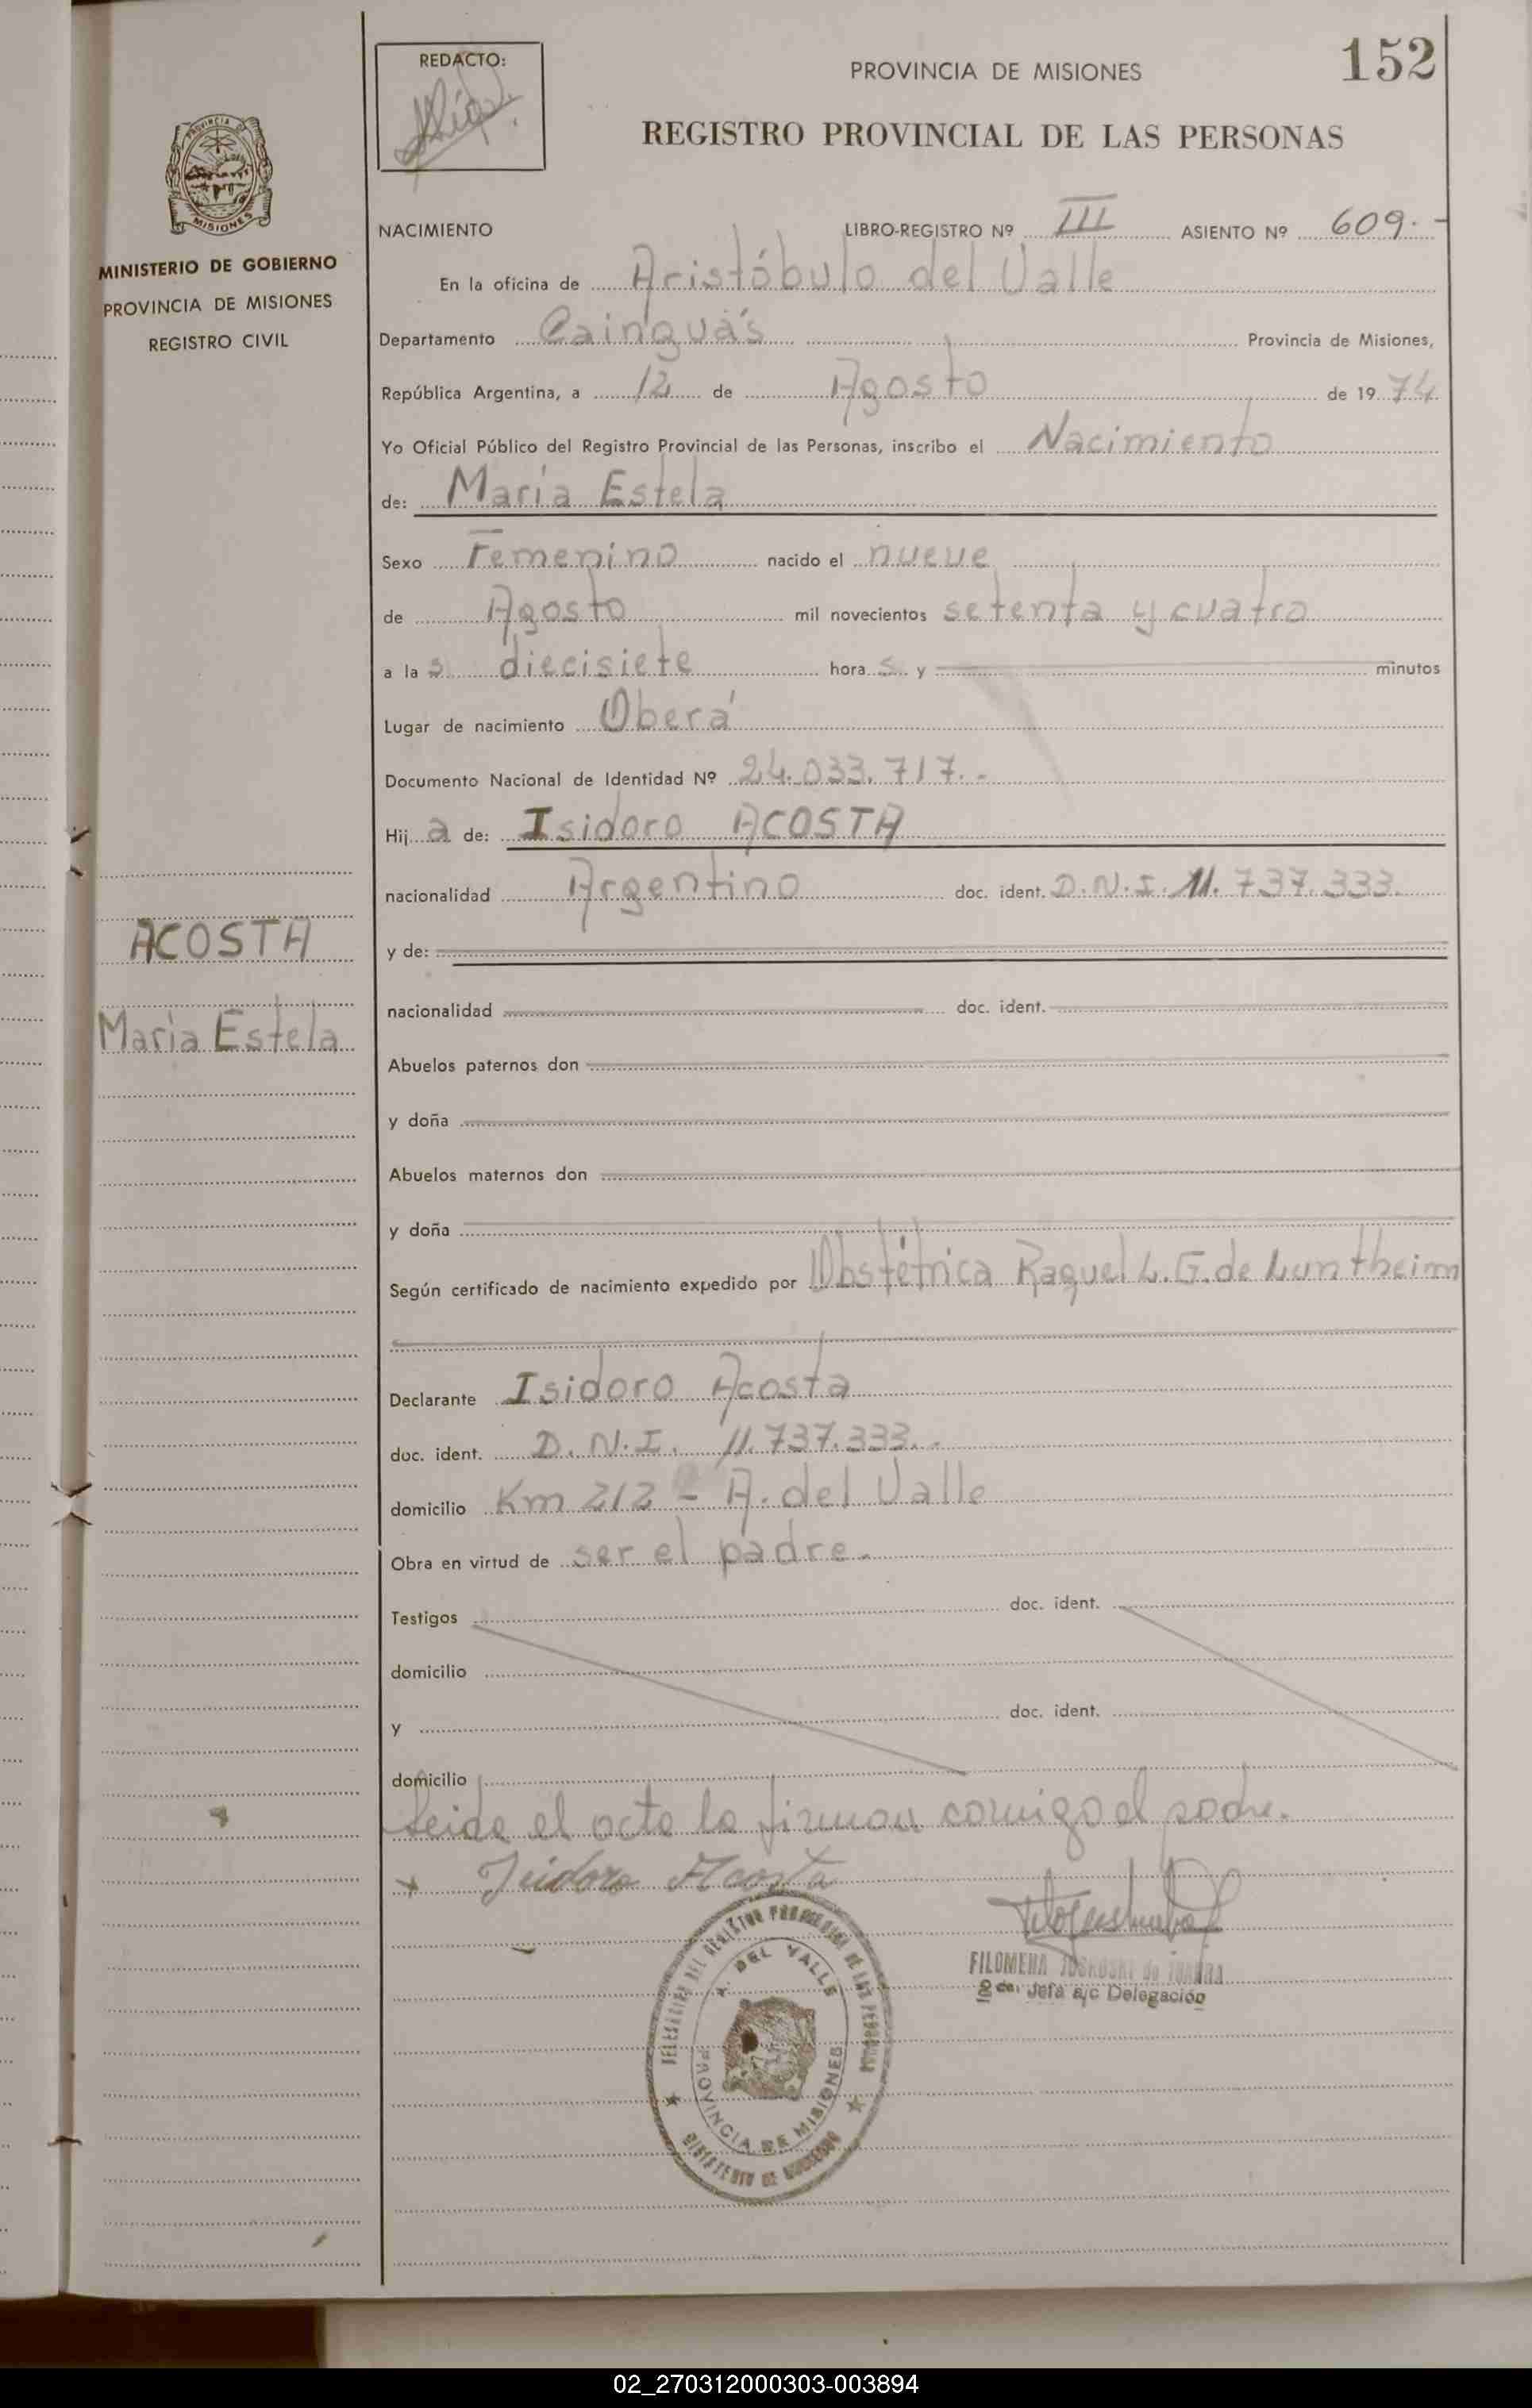 152
REDACTO:
PROVINCIA DE MISIONES
REGISTRO PROVINCIAL DE LAS PERSONAS
PROVINCIA DE
MISIONES
MINISTERIO DE GOBIERNO
PROVINCIA DE MISIONES
REGISTRO CIVIL
NACIMIENTO LIBRO-REGISTRO Nº III ASIENTO Nº 609.-
En la oficina de Aristóbulo del Valle
Departamento Cainguás Provincia de Misiones,
República Argentina, a 12 de Agosto de 1974
Yo Oficial Público del Registro Provincial de las Personas, inscribo el Nacimiento
de: María Estela
Sexo Femenino nacido el nueve
de Agosto mil novecientos setenta y cuatro
a las diecisiete horas y minutos
Lugar de nacimiento Oberá
Documento Nacional de Identidad Nº 24.033.717.-
Hija de: Isidoro ACOSTA
nacionalidad Argentino doc. ident. D.N.I. 11.737.333.
ACOSTA
y de:
María Estela
nacionalidad doc. ident.
Abuelos paternos don
y doña
Abuelos maternos don
y doña
Según certificado de nacimiento expedido por Obstétrica Raquel L. G. de Luntheim
Declarante Isidoro Acosta
doc. ident. D.N.I. 11.737.333.-
domicilio Km 212 - A. del Valle
Obra en virtud de ser el padre.
Testigos doc. ident.
domicilio
y doc. ident.
domicilio
Leida el acta la firman comigo el padre.
Isidoro Acosta
FILOMENA
2da. Jefa a/c Delegación
DELEGACION DEL REGISTRO PROVINCIAL DE LAS PERSONAS
A. DEL VALLE
PROVINCIA DE MISIONES
MINISTERIO DE GOBIERNO
02_270312000303-003894